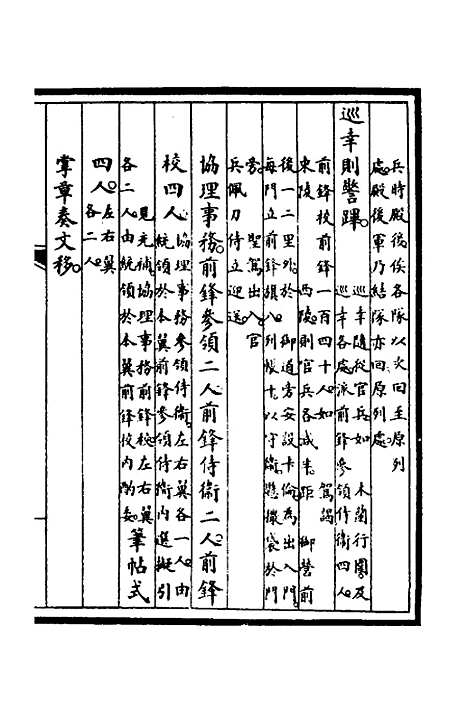 兵時殿後俟各隊以次回至原列
處殿後軍乃結隊亦回原列處
巡幸則警蹕
巡幸隨從官兵如 木蘭行圍及
巡幸各處派前鋒參領侍衛四人
前鋒校前鋒一百四十人如 駕謁
東陵 西陵則官兵各減半距 御營前
後一二里外於 御道旁安設卡倫為出入門
每門立前鋒旗八列帳十以守衛懸撒袋於門
旁 聖駕出入官
兵佩刀侍立迎送
協理事務前鋒參領二人前鋒侍衛二人前鋒
校四人
協理事務參領侍衛左右翼各一人由
統領於本翼前鋒參領侍衛内選擬引
見充補協理事務前鋒校左右翼
各二人由統領於本翼前鋒校内酌委
筆帖式
四人
左右翼
各二人
掌章奏文移